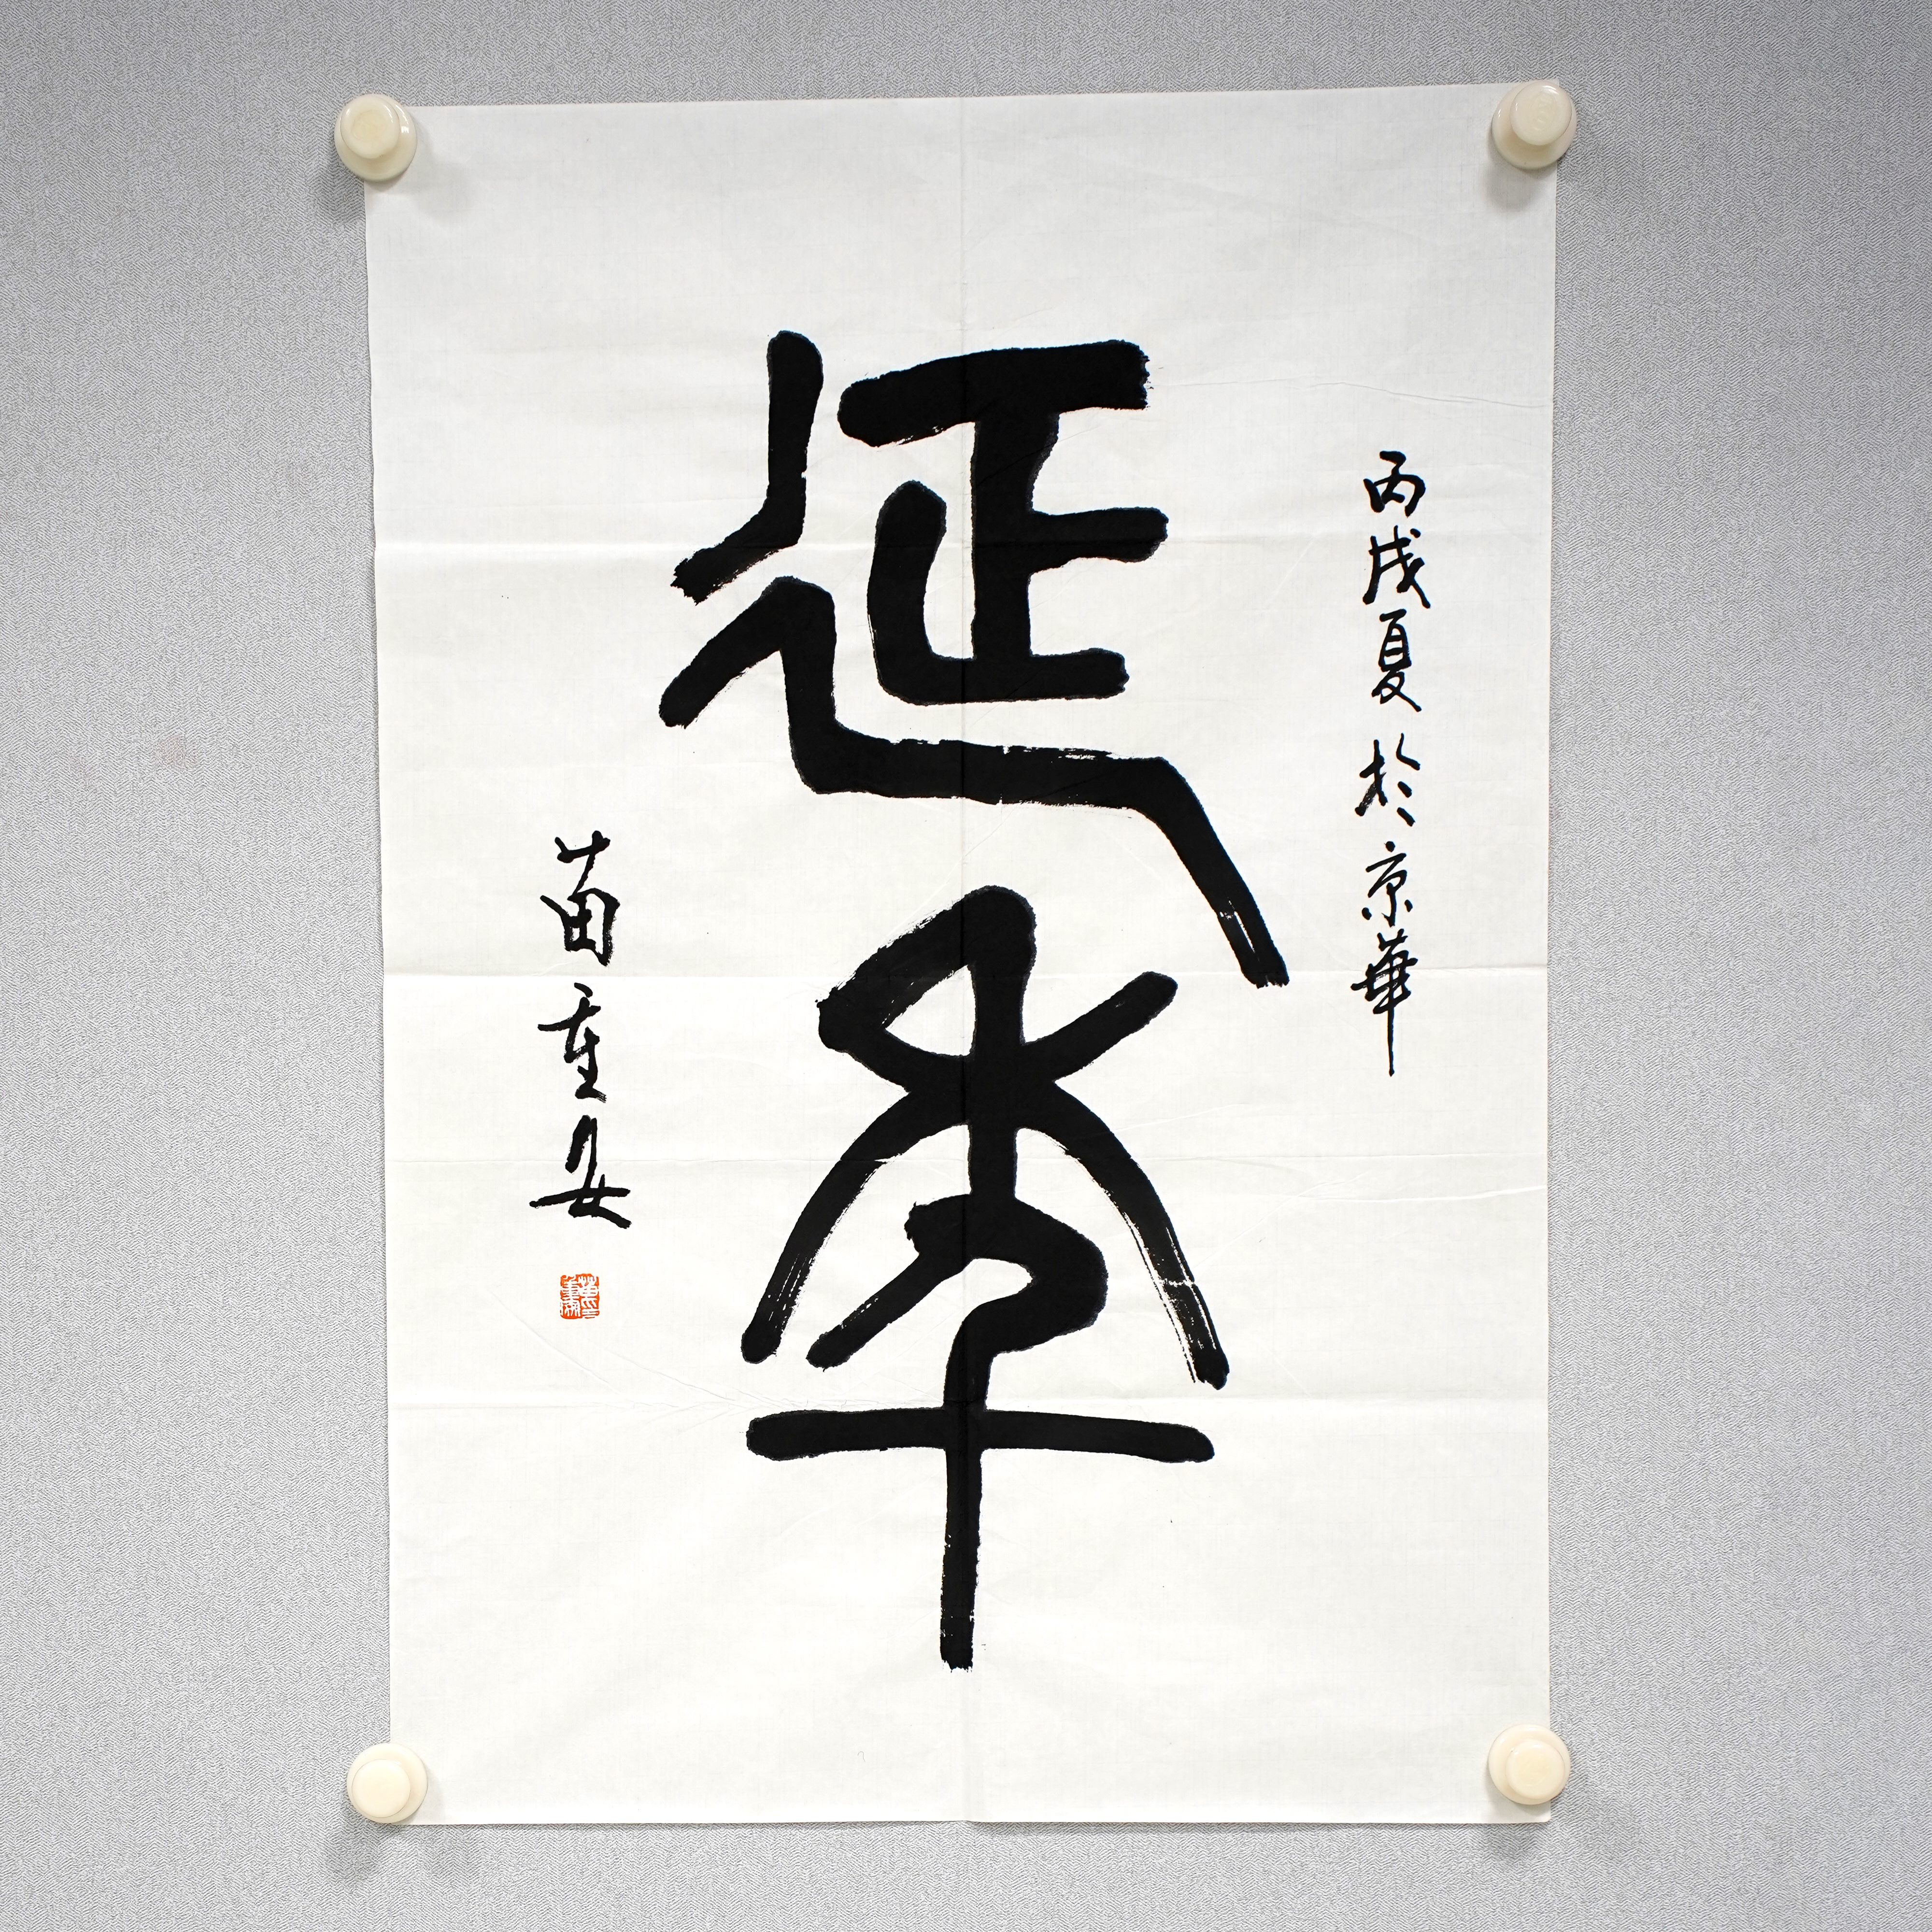 丙戌夏於京華
延年
苗重安